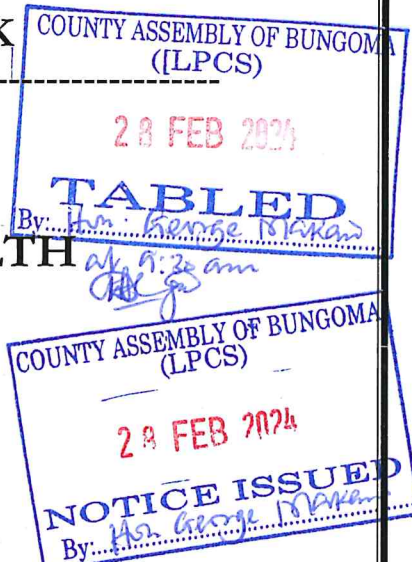 K
COUNTY ASSEMBLY OF BUNGOMA
([LPCS)
28 FEB 2024
TABLED
By: Hon. George Makari
at 9:30 am
LTH
COUNTY ASSEMBLY OF BUNGOMA
(LPCS)
28 FEB 2024
NOTICE ISSUED
By: Hon George